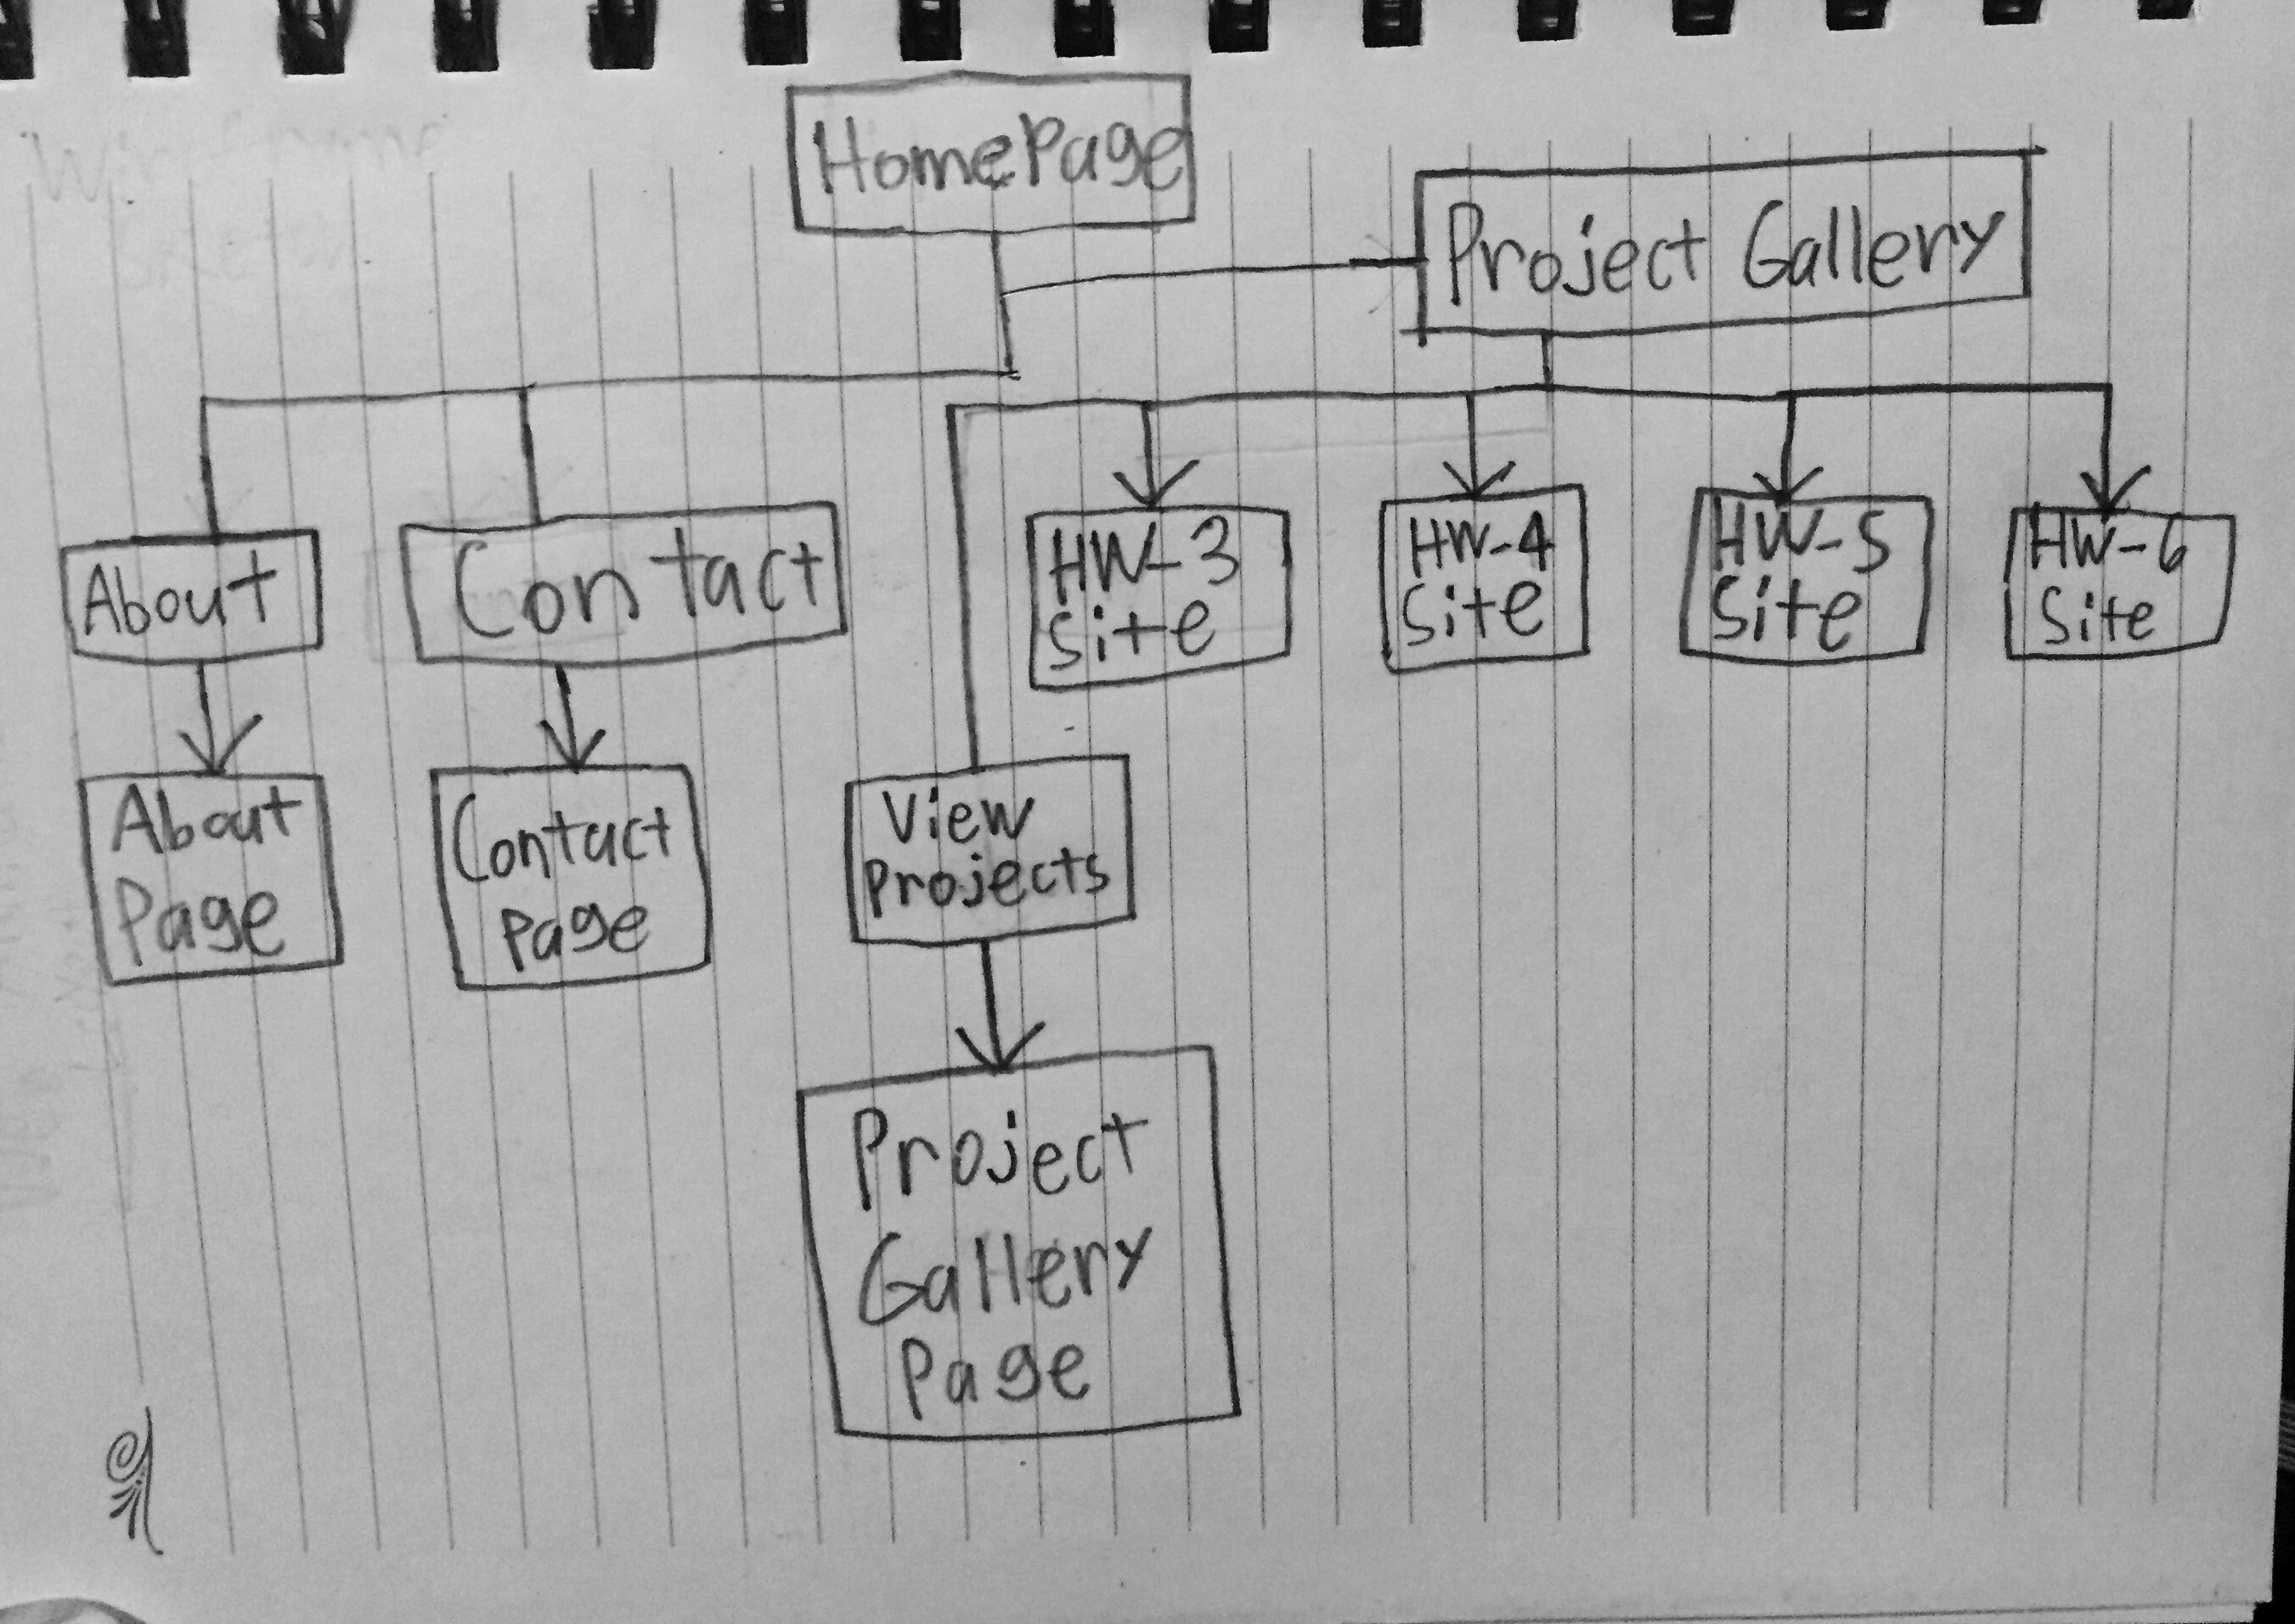 HomePage
Project Gallery
About
Contact
HW-3
Site
HW-4
Site
HW-5
Site
HW-6
Site
About
Page
Contact
Page
View
Projects
Project
Gallery
Page